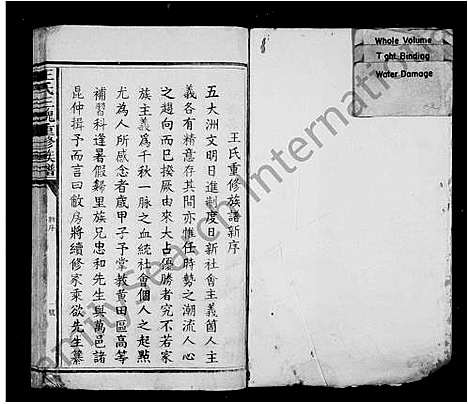 王氏重修族譜新序
五大洲文明日進制度日新社會主義箇人主
義各有精意存其間亦惟任時勢之潮流人心
之趨向而已揆厥由來大占優勝者究不若家
族主義爲千秋一脉之血統社會個人之起點
尤爲人所感念者歲甲子予掌教黄田區高等
補習科逢暑假鷊里族兄忠和先生與萬邑諸
昆仲揖予而言曰敝房將續修家乘欲先生纂
王氏三槐重修族譜
新序
一號
Whole Volume
Tight Binding
Water Damage
FamilySearch International